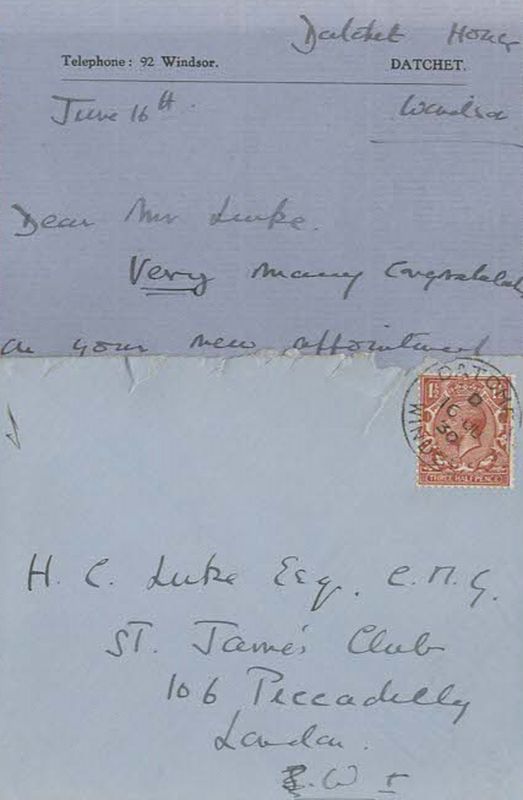 Datchet House
Telephone : 92 Windsor. DATCHET.
June 16th. Windsor
Dear Mr Luke.
Very many Congratulat
on your new appointment
DATCHET
D
16
30
WIND
1½
THREE HALF PENCE
H. C. Luke Esq. C.M.G.
St. James' Club
106 Piccadilly
London.
S.W 1